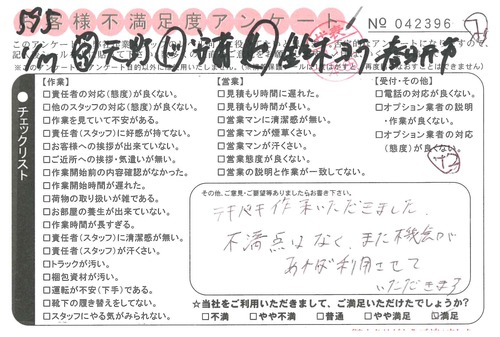 お客様不満足度アンケート
No 042396
595
【作業】
□責任者の対応(態度)が良くない。
□他のスタッフの対応(態度)が良くない。
□作業を見ていて不安がある。
□責任者(スタッフ)に好感が持てない。
□お客様への挨拶が出来ていない。
□ご近所への挨拶・気遣いが無い。
□作業開始前の内容確認がなかった。
□作業開始時間が遅れた。
□荷物の取り扱いが雑である。
□お部屋の養生が出来ていない。
□作業時間が長すぎる。
□責任者(スタッフ)に清潔感が無い。
□責任者(スタッフ)が汗くさい。
□トラックが汚い。
□梱包資材が汚い。
□運転が不安(下手)である。
□靴下の履き替えをしてない。
□スタッフにやる気がみられない。
【営業】
□見積もり時間に遅れた。
□見積もり時間が長い。
□営業マンに清潔感が無い。
□営業マンが煙草くさい。
□営業マンが汗くさい。
□営業態度が良くない。
□営業の説明と作業が一致してない。
【受付・その他】
□電話の対応が良くない。
□オプション業者の説明
・作業が良くない。
□オプション業者の対応
(態度)が良くない。
+2
チェックリスト
その他、ご意見・ご要望等ありましたらお書き下さい。
テキパキ作業いただきました。
不満点はなく、また機会が
あれば利用させて
いただきます
☆当社をご利用いただきまして、ご満足いただけたでしょうか?
□不満 □やや不満 □普通 □やや満足 ☑満足